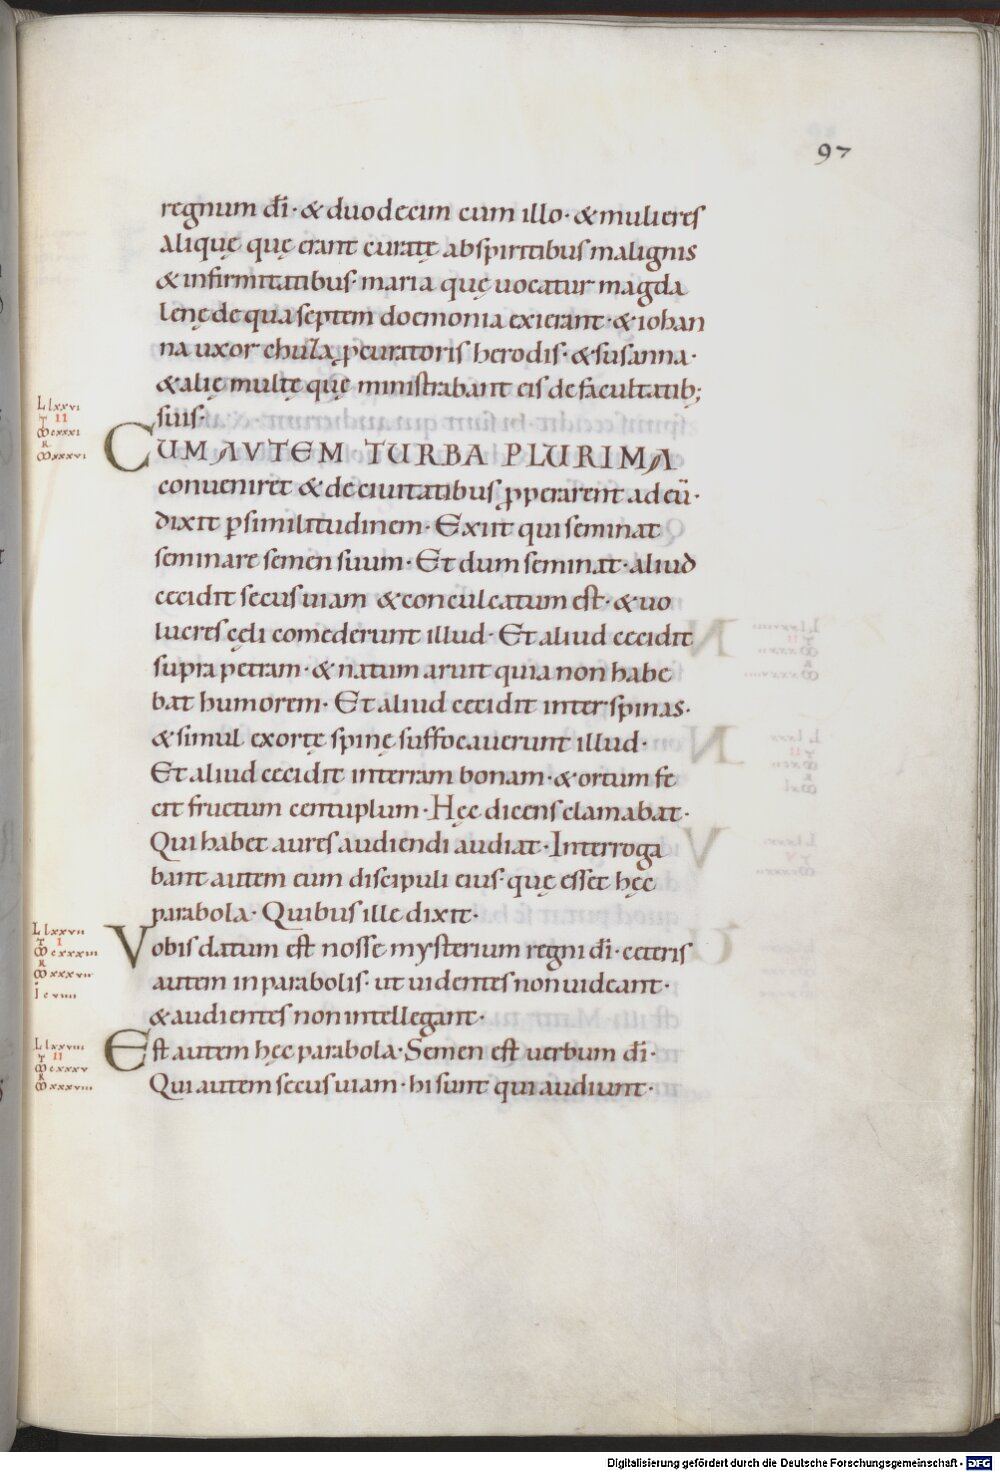 97
regnum dī· & duodecim cum illo· & mulieres
aliquę quę erant curatę abspiritibus malignis
& infirmitatibus· maria quę uocatur magda
lenę de qua septem doemonia exierant· & iohan
na uxor chuzą ꝓcuratoris herodis· & susanna·
& alię multę quę ministrabant eis de facultatib;
suis·
L lxxvi
T II
M cxxxi
R
M xxxvi
CUM AVTEM TURBA PLURIMA
conueniret & de ciuitatibus ꝓperarent ad eū·
dixit ꝑ similitudinem· Exiit qui seminat
seminare semen suum· Et dum seminat· aliud
cecidit secus uiam & conculcatum est· & uo
lucres cęli comederunt illud· Et aliud cecidit
supra petram· & natum aruit quia non habe
bat humorem· Et aliud cecidit inter spinas·
& simul exortę spinę suffocauerunt illud·
Et aliud cecidit interram bonam· & ortum fe
cit fructum centuplum· Hęc dicens clamabat·
Qui habet aures audiendi audiat· Interroga
bant autem eum discipuli eius· quę esset hęc
parabola· Quibus ille dixit·
L lxxvii
T I
M cxxxiii
R
M xxxvii
I c viiii
Vobis datum est nosse mysterium regni dī· ceteris
autem in parabolis· ut uidentes non uideant·
& audientes non intellegant·
L lxxviii
T II
M cxxxv
R
M xxxviii
Est autem hęc parabola· Semen est uerbum dī·
Qui autem secus uiam· hi sunt qui audiunt·
Digitalisierung gefördert durch die Deutsche Forschungsgemeinschaft - DFG